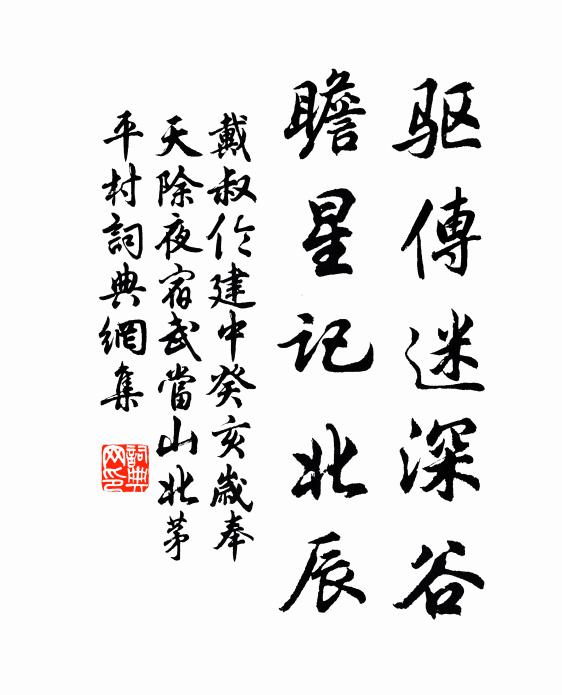 驱傳迷深谷
瞻星記北辰
戴叔伦建中癸亥歲奉
天除夜宿武當山北茅
平村詞典網集
詞典网印